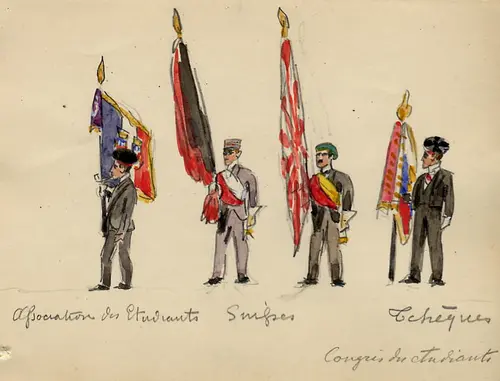 Association des Etudiants Suisses Tchèques
Congrès des étudiants